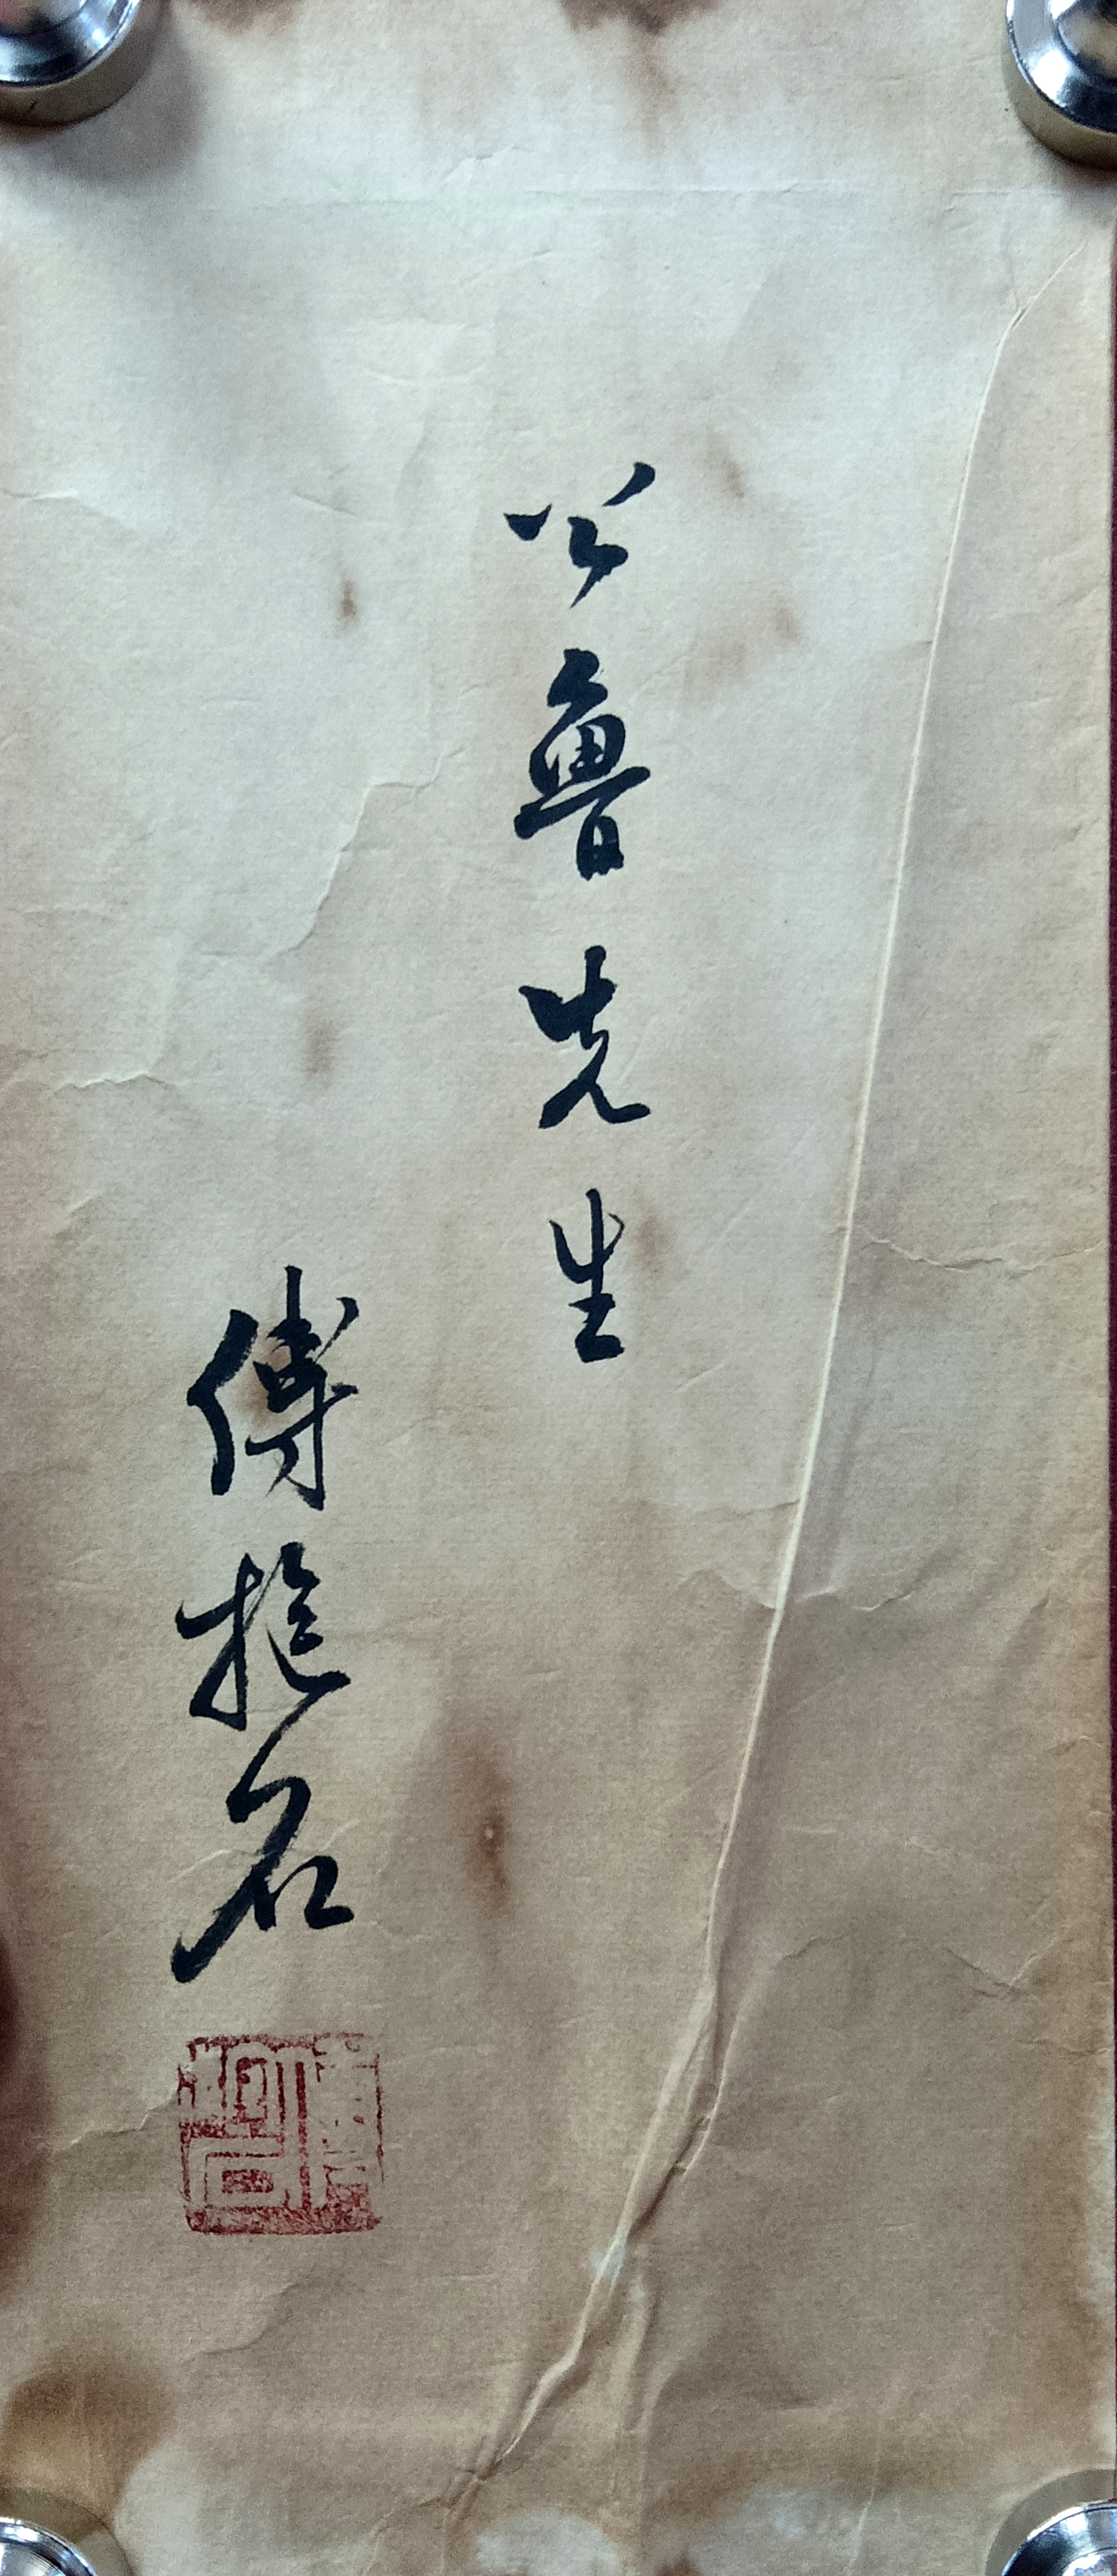 公魯先生
傅抱石